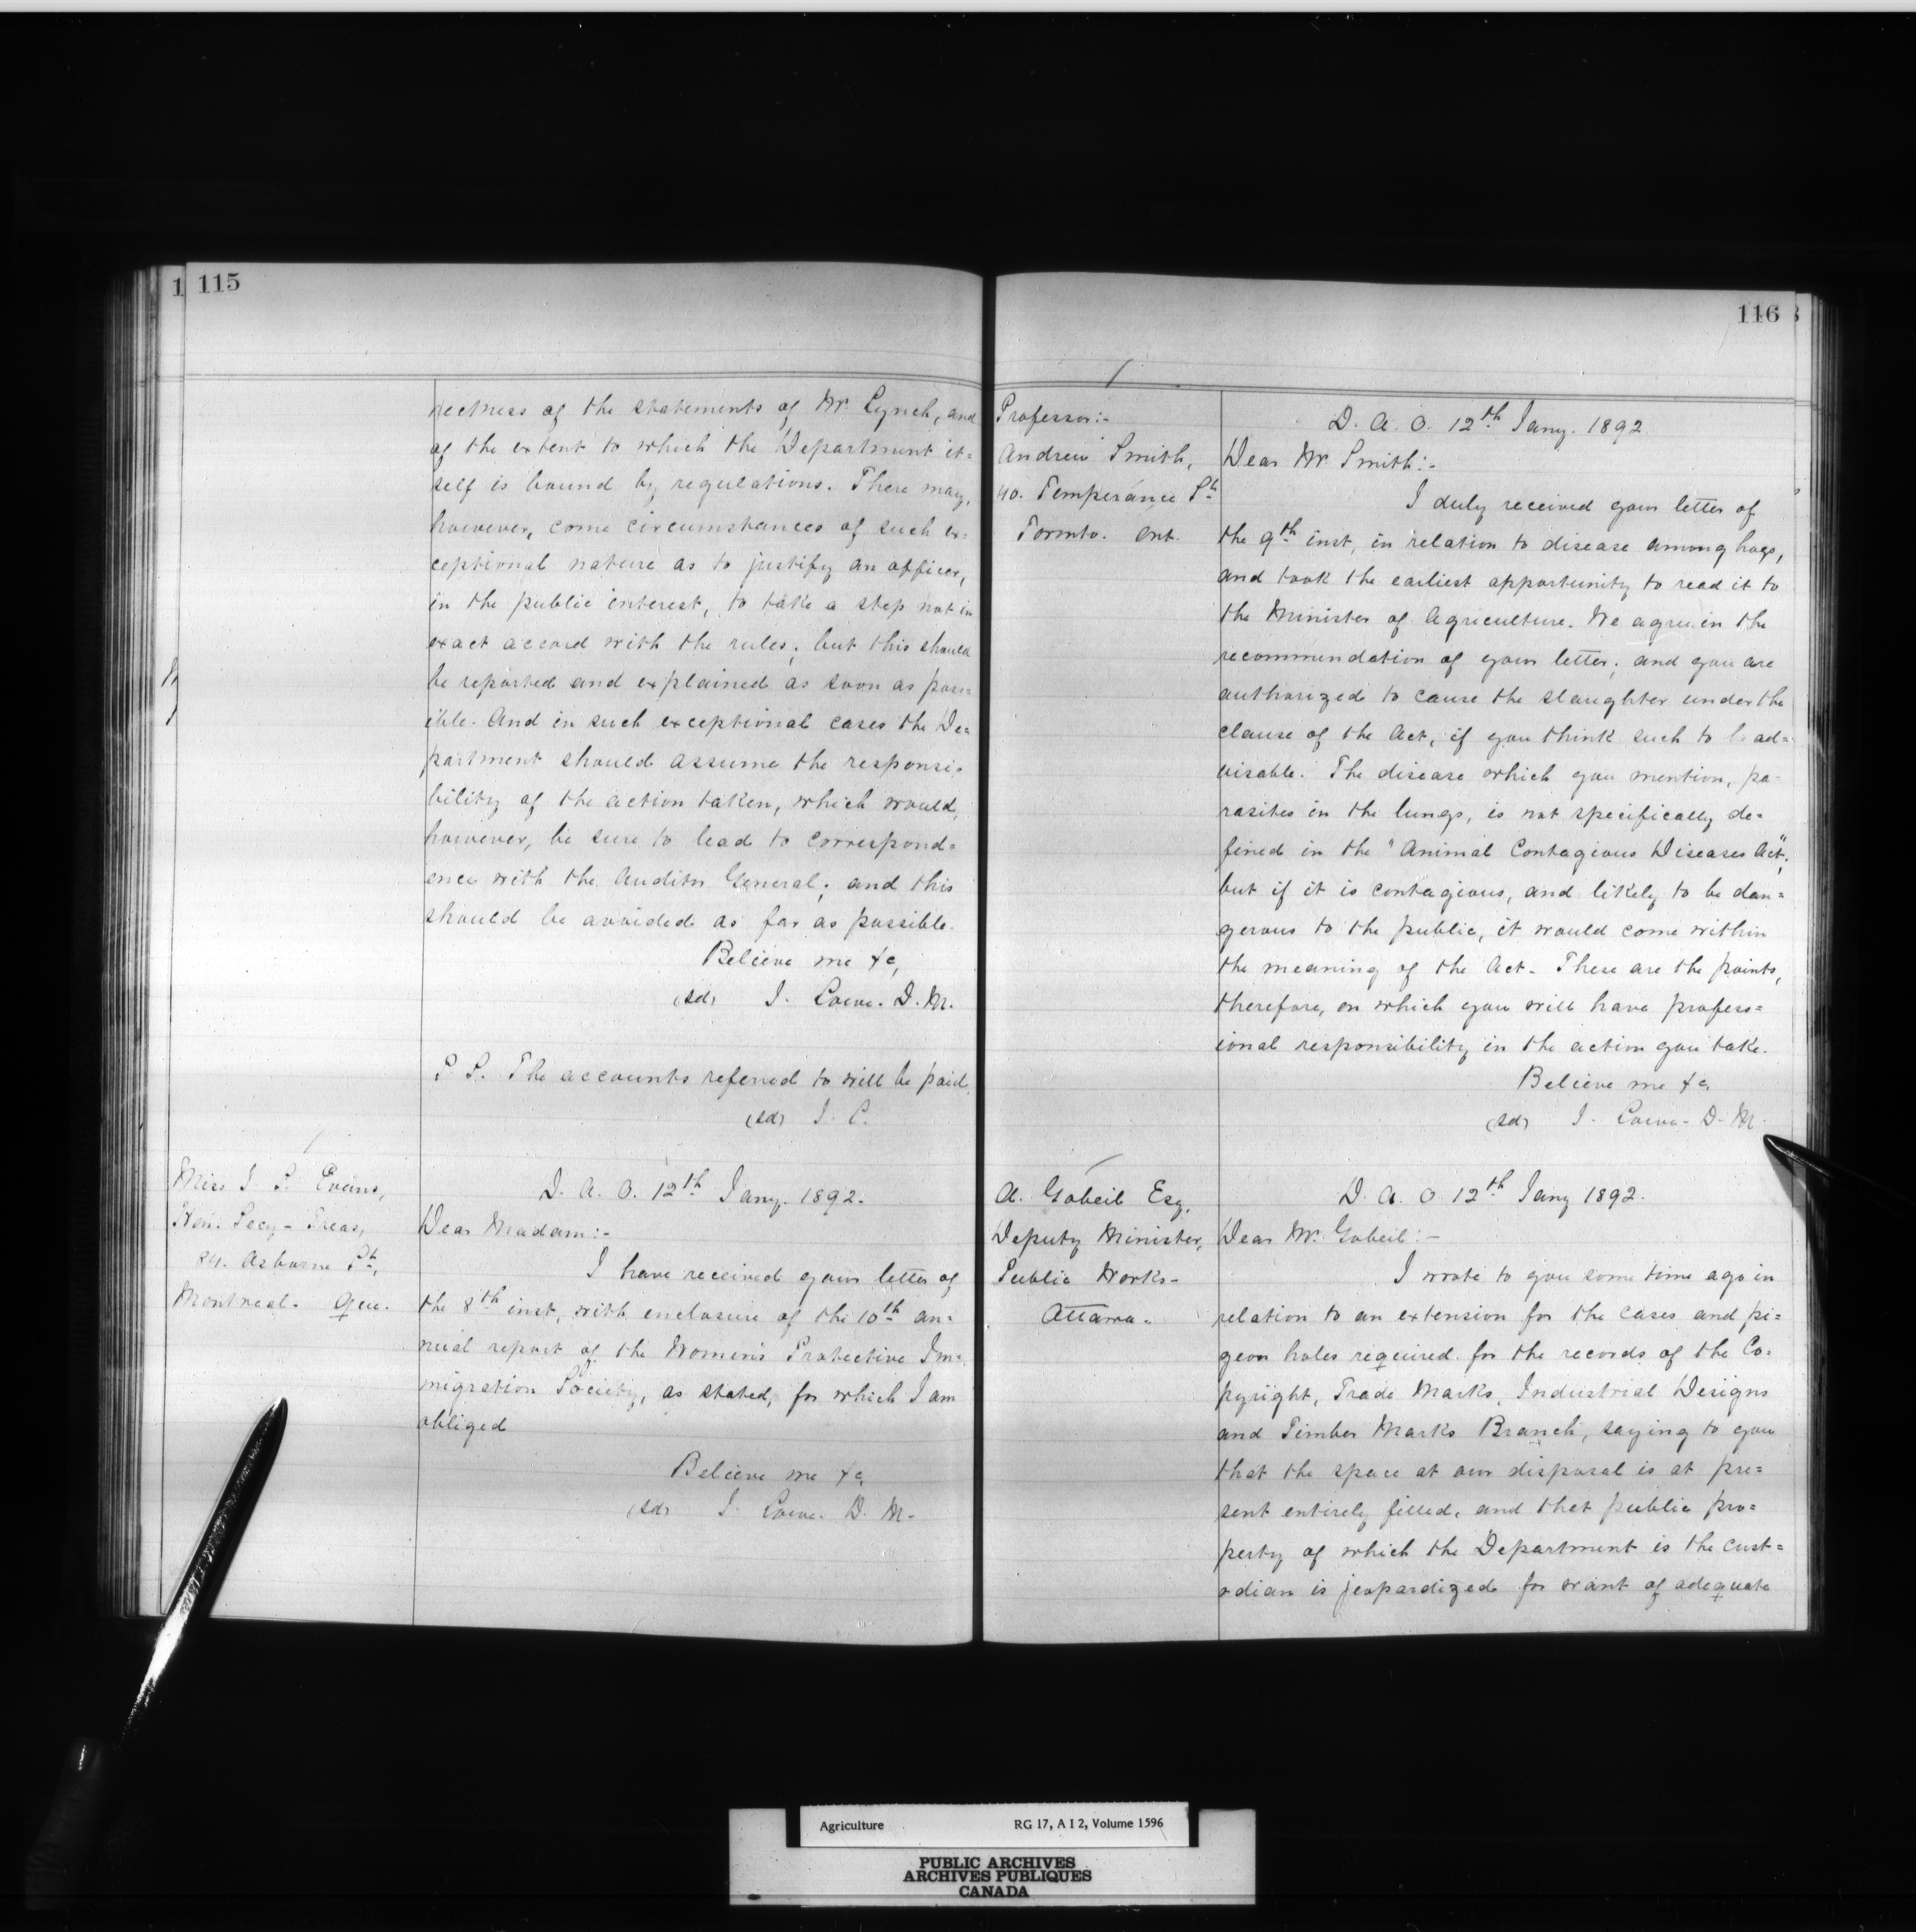 115
rectness of the statements of Mr. Lynch, and
of the extent to which the Department it=
self is bound by regulations. There may,
however, come circumstances of such ex=
ceptional nature as to justify an officer,
in the public interest, to take a step not in
exact accord with the rules; but this should
be reported and explained as soon as poss=
ible. And in such exceptional cases the De=
partment should assume the responsi=
bility of the action taken, which would,
however, be sure to lead to correspond=
ence with the Auditor General; and this
should be avoided as far as possible.
Believe me &c,
(sd) J. Lowe. D. M.
P. S. The accounts referred to will be paid.
(sd) J. L.
Miss J. S. Evans,
Hon. Secy - Treas,
84. Osborne St,
Montreal. Que.
D. A. O. 12th Jany. 1892.
Dear Madam:-
I have received your letter of
the 8th inst, with enclosure of the 10th an=
nual report of the Women's Protective Im=
migration Society, as stated, for which I am
obliged
Believe me &c,
(sd) J. Lowe. D. M.
116
Professor:-
Andrew Smith,
40. Temperance St
Toronto. Ont.
D. A. O. 12th Jany. 1892
Dear Mr Smith:-
I duly received your letter of
the 9th inst, in relation to disease among hogs,
and took the earliest opportunity to read it to
the Minister of Agriculture. We agree in the
recommendation of your letter; and you are
authorized to cause the slaughter under the
clause of the Act, if you think such to be ad=
visable. The disease which you mention, pa=
rasites in the lungs, is not specifically de=
fined in the "Animal Contagious Diseases Act";
but if it is contagious, and likely to be dan=
gerous to the public, it would come within
the meaning of the Act. These are the points,
therefore, on which you will have profess=
ional responsibility in the action you take.
Believe me &c,
(sd) J. Lowe - D. M.
A. Gobeil Esq,
Deputy Minister,
Public Works -
Ottawa.
D. A. O 12th Jany 1892.
Dear Mr. Gobeil:-
I wrote to you some time ago in
relation to an extension for the cases and pi=
geon holes required for the records of the Co=
pyright, Trade Marks, Industrial Designs
and Timber Marks Branch, saying to you
that the space at our disposal is at pre=
sent entirely filled, and that public pro=
perty of which the Department is the cust=
odian is jeopardized for want of adequate
Agriculture RG 17, A I 2, Volume 1596
PUBLIC ARCHIVES
ARCHIVES PUBLIQUES
CANADA